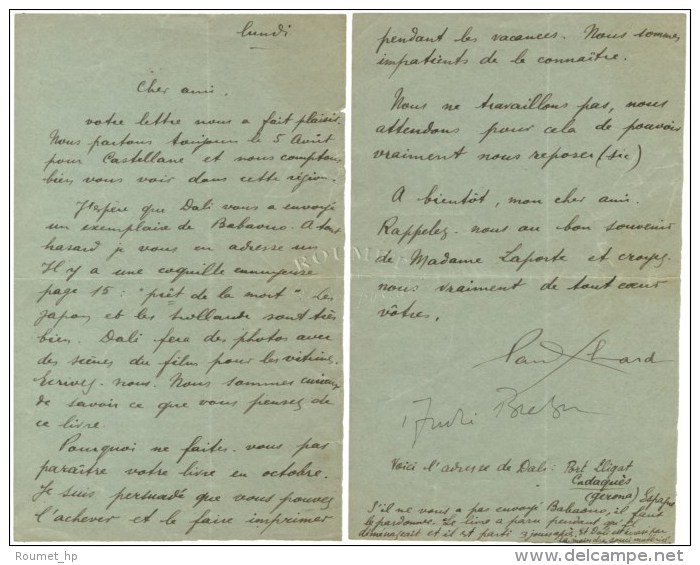 lundi
Cher ami.
votre lettre nous a fait plaisir.
Nous partons toujours le 5 Août
pour Castellane et nous comptons
bien vous voir dans cette région.
J'espère que Dali vous a envoyé
un exemplaire de Babaouo. A tout
hasard je vous en adresse un
Il y a une coquille ennuyeuse
page 15 : "prêt de la mort" les
Japon et les hollande sont très
bien. Dali fera des photos avec
des scènes du film pour les vitrines.
Ecrivez-nous. Nous sommes curieux
de savoir ce que vous pensez de
ce livre
Pourquoi ne faites-vous pas
paraître votre livre en octobre.
Je suis persuadé que vous pouvez
l'achever et le faire imprimer
pendant les vacances. Nous sommes
impatients de le connaître.
Nous ne travaillons pas, nous
attendons pour cela de pouvoir
vraiment nous reposer (sic)
A bientôt, mon cher ami.
Rappelez-nous au bon souvenir
de Madame Laporte et croyez-
nous vraiment de tout cœur
vôtres,
Paul Eluard
André Breton
Voici l'adresse de Dali : Port Lligat
Cadaquès
(gerona) Espagne
S'il ne vous a pas envoyé Babaouo, il faut
le pardonner. Le livre a paru pendant qu'il
déménageait et il est parti 3 jours après. Et Dali
ROUMET
Roumet_hp
www.delcampe.net